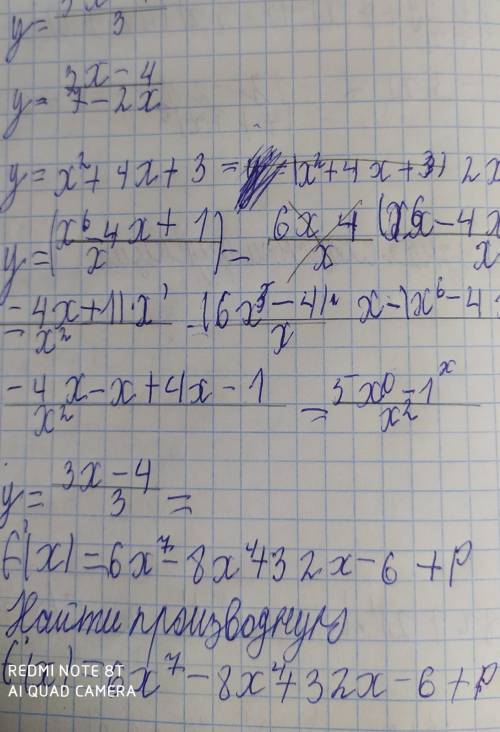 y = 3
y = 3x - 4 / 7 - 2x
y = x² + 4x + 3 = (x² + 4x + 3) 2x
y = (x⁶ - 4x + 1 / x) = 6x 4 / x (x⁶ - 4x / x
= - 4x + 1) · x' / x² (6x⁵ - 4) · x - (x⁶ - 4 / x
- 4x - x + 4x - 1 / x² = 5x⁶ - 1 / x²
y = 3x - 4 / 3 =
f'(x) = 6x⁷ - 8x⁴ + 32x - 6 + p
Найти производную
x⁷ - 8x⁴ + 32x - 6 + p
REDMI NOTE 8T
AI QUAD CAMERA